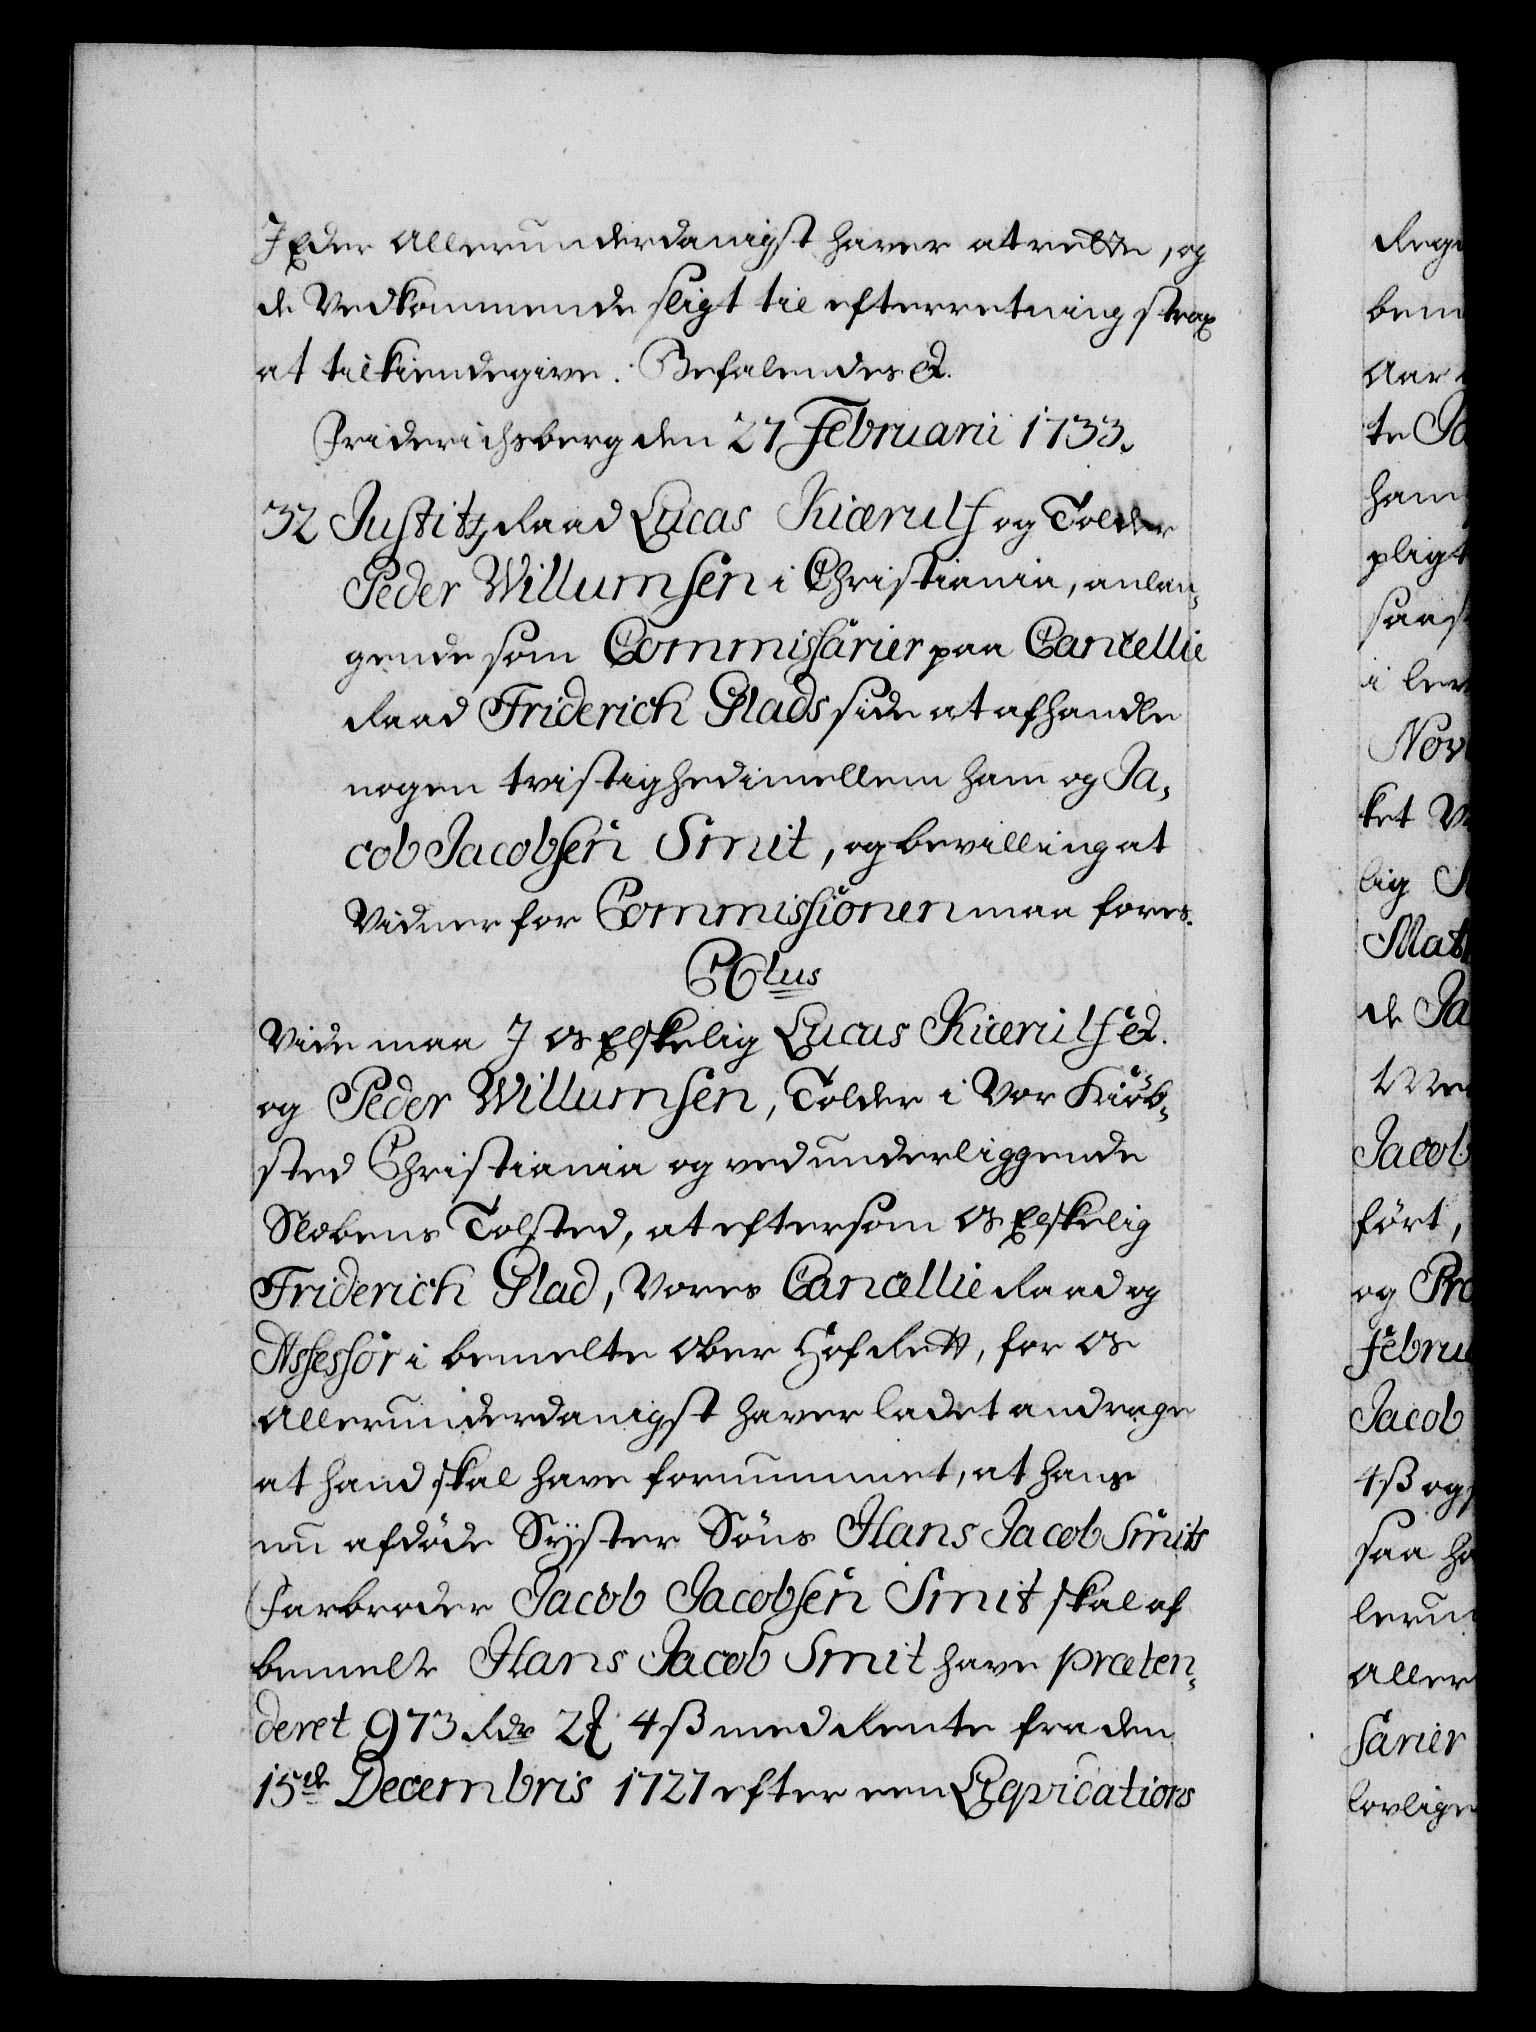 I Eder Allerunderdanigst haver at rette, og
de Vedkommende sligt til efterretning strax
at tilkiendegive. Befalendes &.
Friderichsberg den 27 Februarii 1733.
32 Justitz Raad Lucas Kiærulf og Tolder
Peder Willumsen i Christiania, anlan,
gende som Commissarier paa Cancellie
Raad Friderich Glads side at afhandle
nogen tvistighed imellem ham og Ja,
cob Jacobsen Smit, og bevilling at
Vidner for Commissionen maa föres.
C6tus
Vide maa I os Elskelig Lucas Kiærulf &.
og Peder Willumsen, Tolder i Vor Kiöb,
sted Christiania og ved underliggende
Slæbens Tolsted, at eftersom os Elskelig
Friderich Glad, Vores Cancellie Raad og
Assessor i bemelte Ober Hof Rett, for os
Allerunderdanigst haver ladet andrage
at hand skal have fornummet, at hans
nu afdöde Syster Söns Hans Jacob Smits
Farbroder Jacob Jacobsen Smit skal af
bemelte Hans Jacob Smit have præten,
deret 973 Rdr 2 4 ß med Rente fra den
15de Decembris 1727 efter een Liqvidations
Reg
bem
Aar
te Ja
ham
pligt
saa
i lev
Nov
ket V
lig
Mat
de Ja
Me
Jacob
fört,
og Pro
Febru
Jacob
4 ß og
saa ha
lerun
Aller
sarier
lovlige